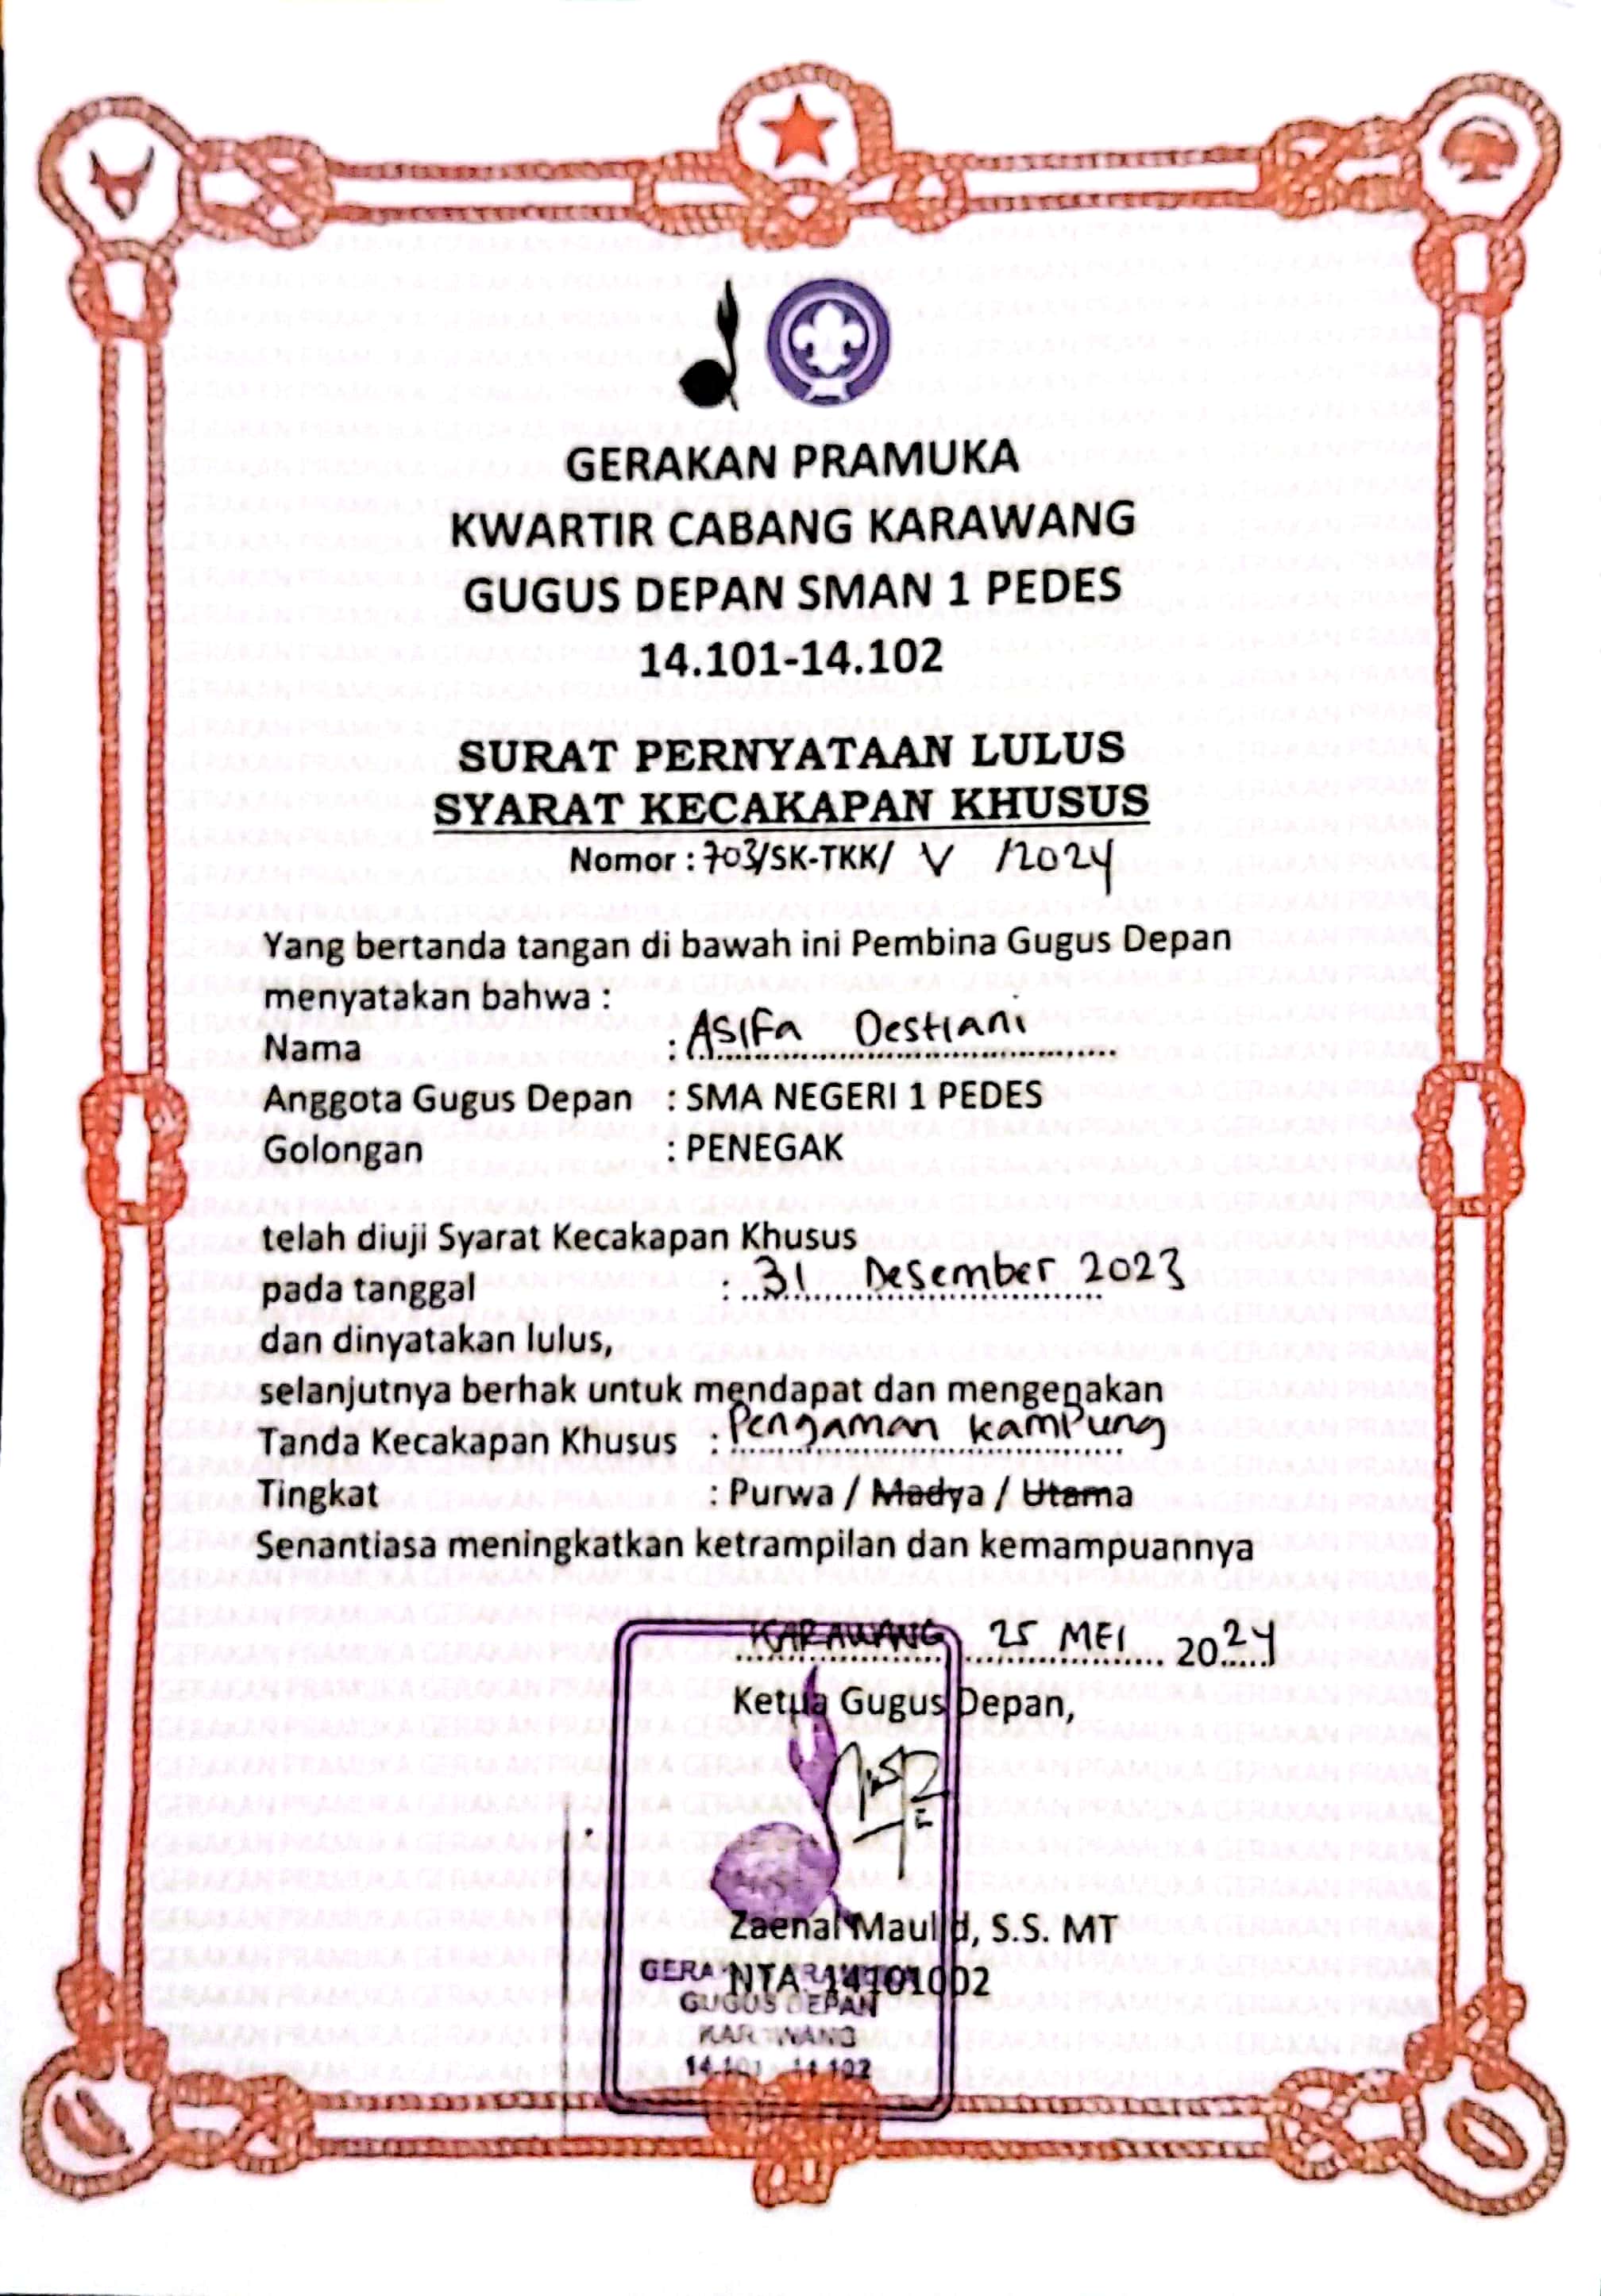 GERAKAN PRAMUKA
KWARTIR CABANG KARAWANG
GUGUS DEPAN SMAN 1 PEDES
14.101-14.102
SURAT PERNYATAAN LULUS
SYARAT KECAKAPAN KHUSUS
Nomor : 703/SK-TKK/ V /2024
Yang bertanda tangan di bawah ini Pembina Gugus Depan
menyatakan bahwa :
Nama : Asifa Oestiani
Anggota Gugus Depan : SMA NEGERI 1 PEDES
Golongan : PENEGAK
telah diuji Syarat Kecakapan Khusus
pada tanggal : 31 Desember 2023
dan dinyatakan lulus,
selanjutnya berhak untuk mendapat dan mengenakan
Tanda Kecakapan Khusus : Pengaman kampung
Tingkat : Purwa / Madya / Utama
Senantiasa meningkatkan ketrampilan dan kemampuannya
KARAWANG 25 MEI 2024
Ketua Gugus Depan,
Zaenal Maulid, S.S. MT
NTA 14101002
GERAKAN PRAMUKA
GUGUS DEPAN
KARAWANG
14.101 - 14.102